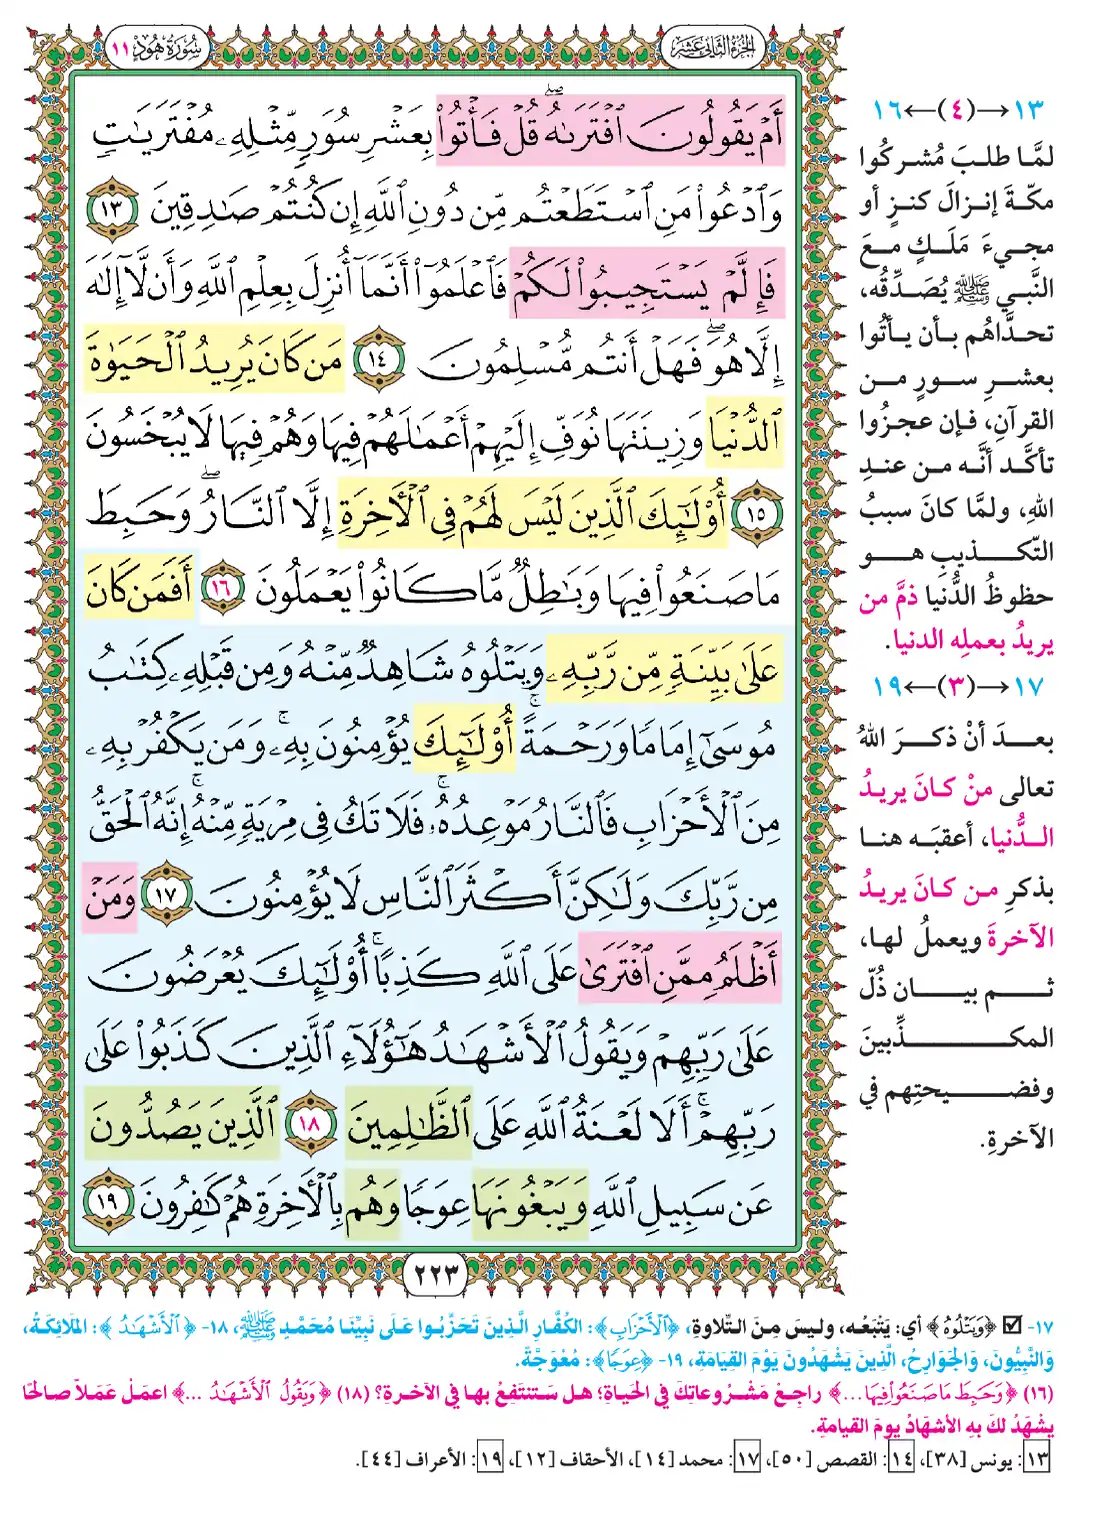 الجزء الثاني عشر
سورة هود ١١
أَمْ يَقُولُونَ ٱفْتَرَىٰهُ ۖ قُلْ فَأْتُوا۟ بِعَشْرِ سُوَرٍ مِّثْلِهِۦ مُفْتَرَيَٰتٍ
وَٱدْعُوا۟ مَنِ ٱسْتَطَعْتُم مِّن دُونِ ٱللَّهِ إِن كُنتُمْ صَٰدِقِينَ ١٣
فَإِلَّمْ يَسْتَجِيبُوا۟ لَكُمْ فَٱعْلَمُوٓا۟ أَنَّمَآ أُنزِلَ بِعِلْمِ ٱللَّهِ وَأَن لَّآ إِلَٰهَ
إِلَّا هُوَ ۖ فَهَلْ أَنتُم مُّسْلِمُونَ ١٤ مَن كَانَ يُرِيدُ ٱلْحَيَوٰةَ
ٱلدُّنْيَا وَزِينَتَهَا نُوَفِّ إِلَيْهِمْ أَعْمَٰلَهُمْ فِيهَا وَهُمْ فِيهَا لَا يُبْخَسُونَ
١٥ أُو۟لَٰٓئِكَ ٱلَّذِينَ لَيْسَ لَهُمْ فِى ٱلْءَاخِرَةِ إِلَّا ٱلنَّارُ ۖ وَحَبِطَ
مَا صَنَعُوا۟ فِيهَا وَبَٰطِلٌ مَّا كَانُوا۟ يَعْمَلُونَ ١٦ أَفَمَن كَانَ
عَلَىٰ بَيِّنَةٍ مِّن رَّبِّهِۦ وَيَتْلُوهُ شَاهِدٌ مِّنْهُ وَمِن قَبْلِهِۦ كِتَٰبُ
مُوسَىٰٓ إِمَامًا وَرَحْمَةً ۚ أُو۟لَٰٓئِكَ يُؤْمِنُونَ بِهِۦ ۚ وَمَن يَكْفُرْ بِهِۦ
مِنَ ٱلْأَحْزَابِ فَٱلنَّارُ مَوْعِدُهُۥ ۚ فَلَا تَكُ فِى مِرْيَةٍ مِّنْهُ ۚ إِنَّهُ ٱلْحَقُّ
مِن رَّبِّكَ وَلَٰكِنَّ أَكْثَرَ ٱلنَّاسِ لَا يُؤْمِنُونَ ١٧ وَمَنْ
أَظْلَمُ مِمَّنِ ٱفْتَرَىٰ عَلَى ٱللَّهِ كَذِبًا ۚ أُو۟لَٰٓئِكَ يُعْرَضُونَ
عَلَىٰ رَبِّهِمْ وَيَقُولُ ٱلْأَشْهَٰدُ هَٰٓؤُلَآءِ ٱلَّذِينَ كَذَبُوا۟ عَلَىٰ
رَبِّهِمْ ۚ أَلَا لَعْنَةُ ٱللَّهِ عَلَى ٱلظَّٰلِمِينَ ١٨ ٱلَّذِينَ يَصُدُّونَ
عَن سَبِيلِ ٱللَّهِ وَيَبْغُونَهَا عِوَجًا وَهُم بِٱلْءَاخِرَةِ هُمْ كَٰفِرُونَ ١٩
٢٢٣
١٣→(٤)←١٦
لمَّا طلبَ مُشركُوا
مكّةَ إنزالَ كنزٍ أو
مجيءَ مَلَكٍ معَ
النَّبي ﷺ يُصَدِّقُه،
تحدَّاهُم بأن يأتُوا
بعشرِ سورٍ من
القرآنِ، فإن عجزُوا
تأكَّد أنَّه من عندِ
اللهِ، ولمَّا كانَ سببُ
التّكذيبِ هو
حظوظُ الدُّنيا ذمَّ من
يريدُ بعملِه الدنيا.
١٧→(٣)←١٩
بعدَ أنْ ذكرَ اللهُ
تعالى منْ كانَ يريدُ
الدُّنيا، أعقبَه هنا
بذكرِ من كانَ يريدُ
الآخرةَ ويعملُ لها،
ثم بيان ذُلّ
المكذِّبينَ
وفضيحتِهم في
الآخرةِ.
١٧- ☑ ﴿وَيَتْلُوهُ﴾ أي: يَتْبَعُه، وليسَ مِنَ التّلاوةِ، ﴿ٱلْأَحْزَابِ﴾: الكُفَّارِ الَّذِينَ تَحَزَّبُوا عَلَى نَبِيِّنَا مُحَمَّدٍ ﷺ، ١٨- ﴿ٱلْأَشْهَٰدُ﴾: المَلَائِكَةُ،
وَالنَّبِيُّونَ، وَالجَوَارِحُ، الَّذِينَ يَشْهَدُونَ يَوْمَ القِيَامَةِ، ١٩- ﴿عِوَجًا﴾: مُعْوَجَّةً.
(١٦) ﴿وَحَبِطَ مَا صَنَعُوا۟ فِيهَا...﴾ راجِعْ مَشْرُوعاتِكَ في الحَياةِ؛ هل سَتنتفِعُ بها في الآخرةِ؟ (١٨) ﴿وَيَقُولُ ٱلْأَشْهَٰدُ ...﴾ اعمَلْ عَمَلاً صالحًا
يشْهَدُ لكَ بهِ الأشهَادُ يومَ القيامةِ.
١٣: يونس [٣٨]، ١٤: القصص [٥٠]، ١٧: محمد [١٤]، الأحقاف [١٢]، ١٩: الأعراف [٤٤].